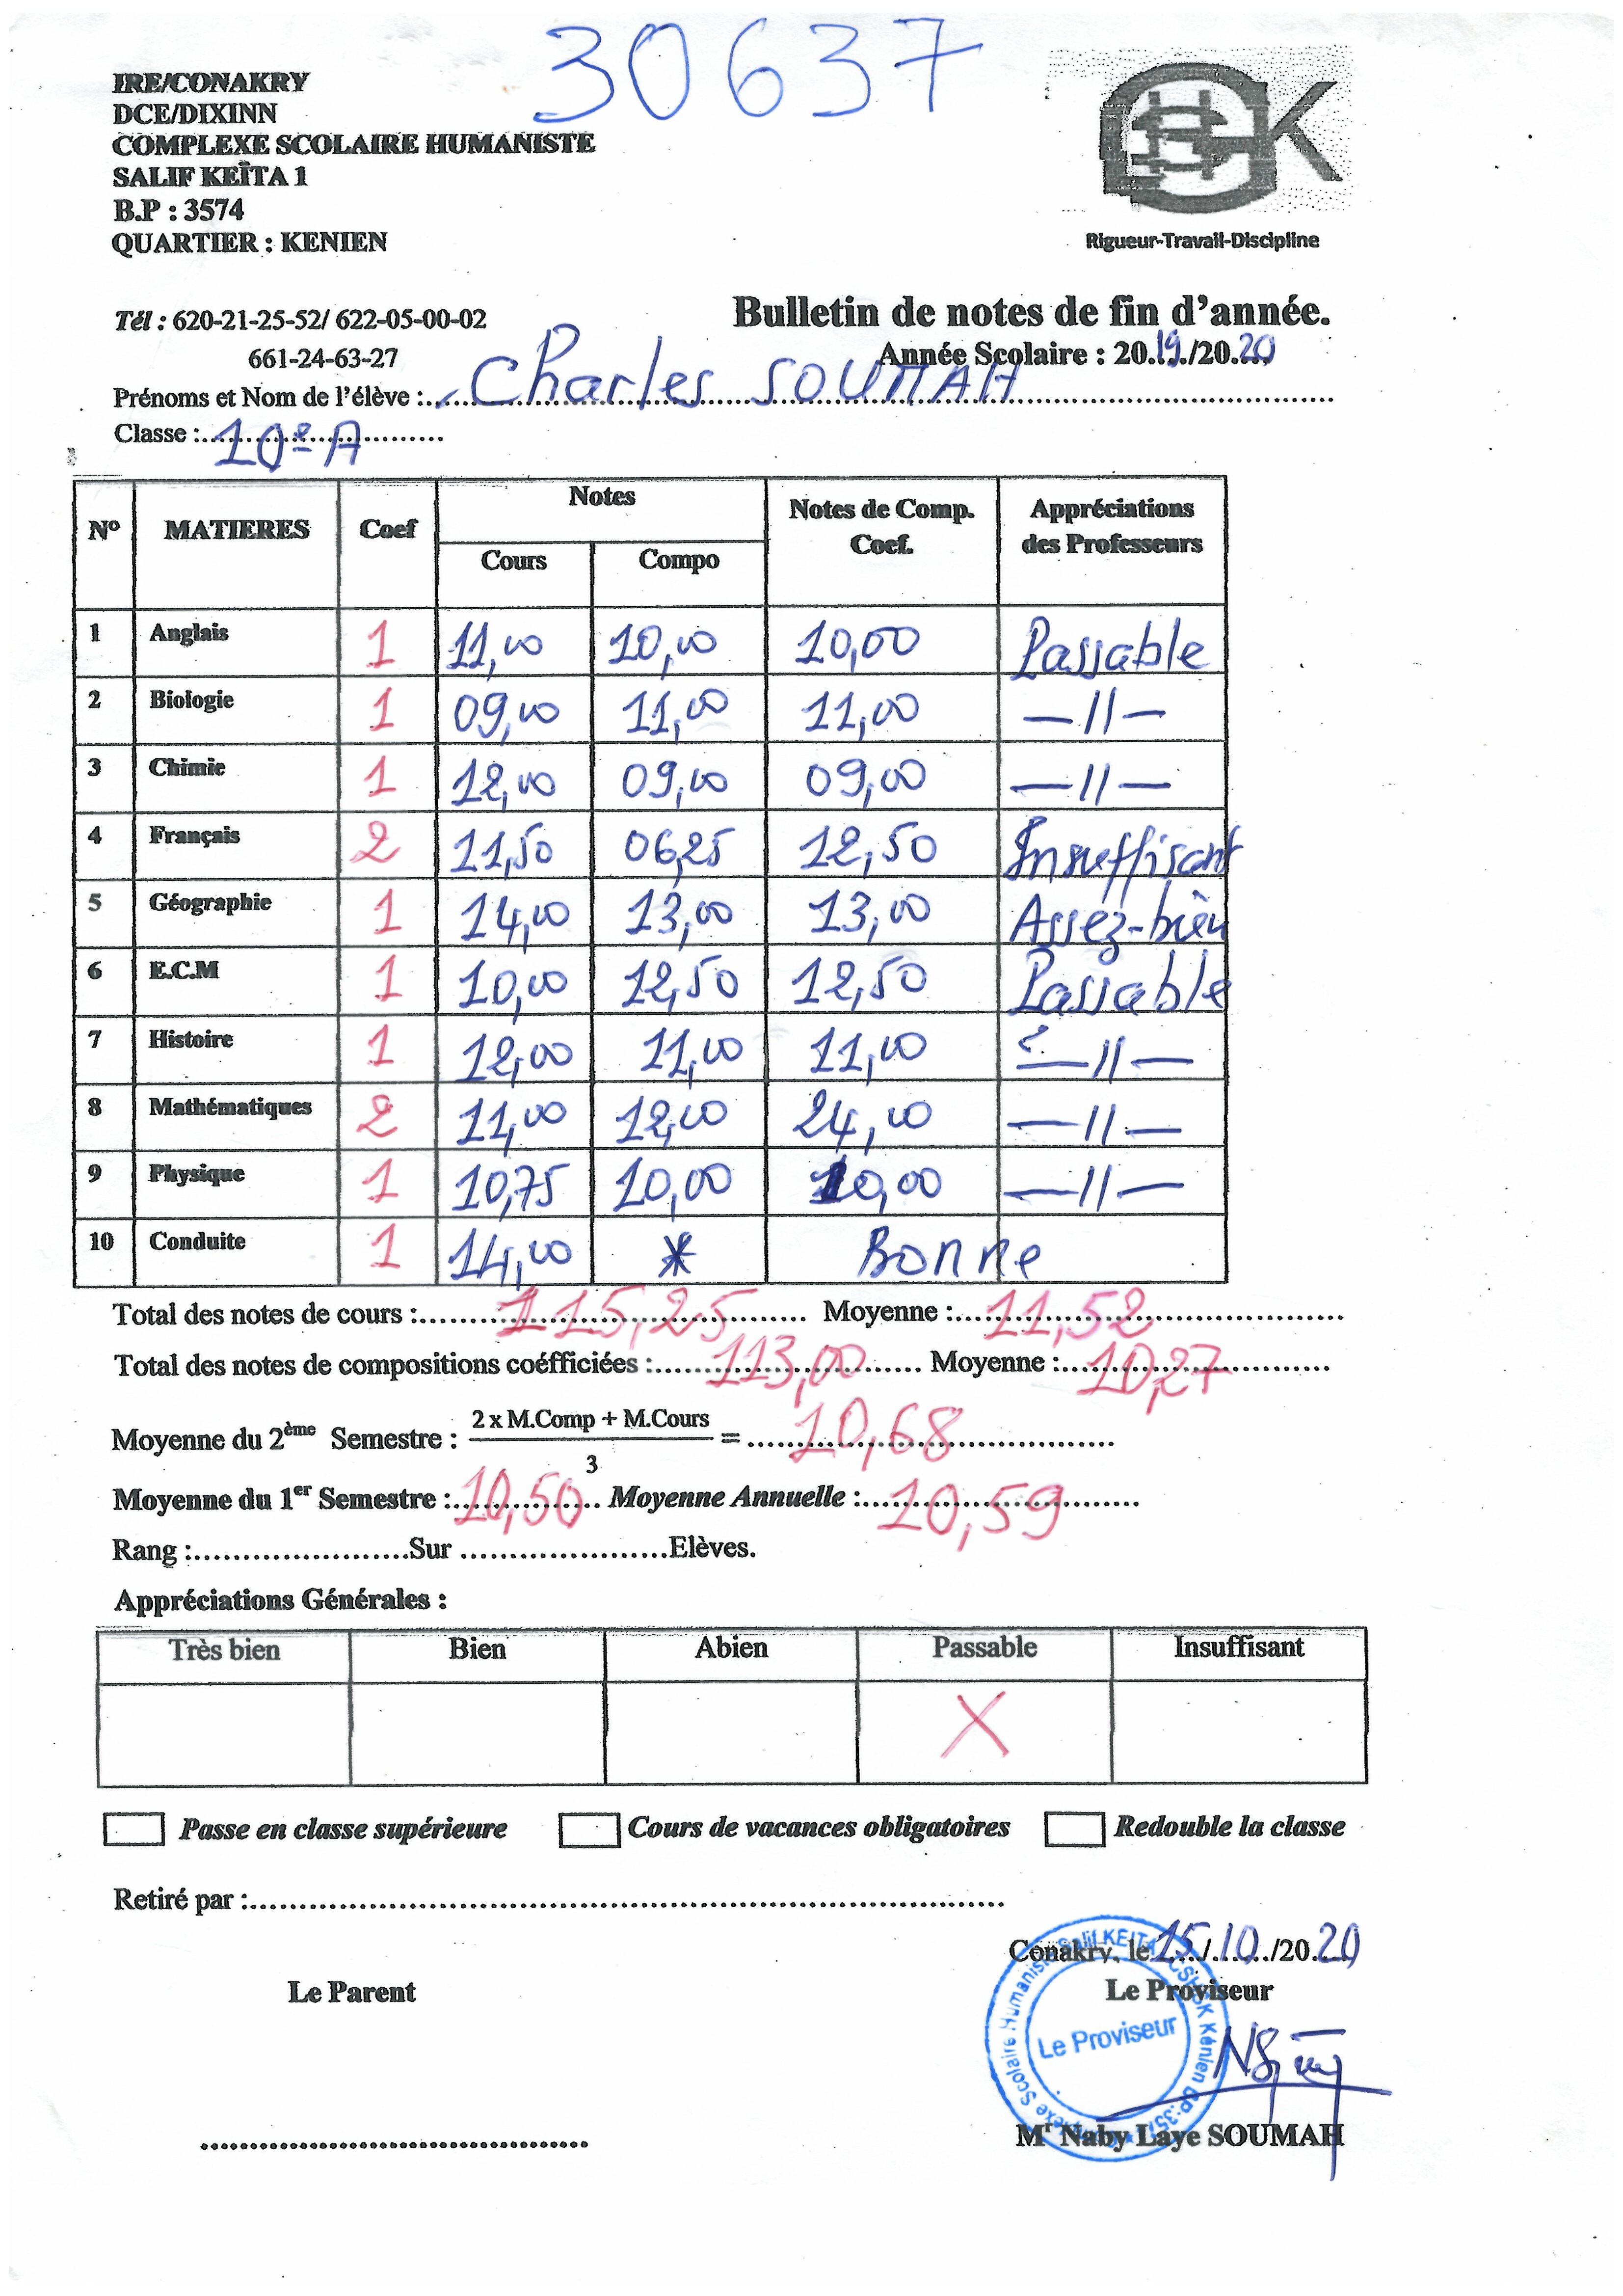 30637
IRE/CONAKRY
DCE/DIXINN
COMPLEXE SCOLAIRE HUMANISTE
SALIF KEÏTA 1
B.P : 3574
QUARTIER : KENIEN
Rigueur-Travail-Discipline
Tél : 620-21-25-52/ 622-05-00-02
661-24-63-27
Bulletin de notes de fin d'année.
Année Scolaire : 20.19/20.20
Prénoms et Nom de l'élève : Charles SOUMAH
Classe : 10e A
N° MATIERES Coef Notes Notes de Comp. Coef. Appréciations des Professeurs
Cours Compo
1 Anglais 1 11,00 10,00 10,00 Passable
2 Biologie 1 09,00 11,00 11,00 —//—
3 Chimie 1 12,00 09,00 09,00 —//—
4 Français 2 11,50 06,25 12,50 Insuffisant
5 Géographie 1 14,00 13,00 13,00 Assez-bien
6 E.C.M 1 10,00 12,50 12,50 Passable
7 Histoire 1 12,00 11,00 11,00 —//—
8 Mathématiques 2 11,00 12,00 24,00 —//—
9 Physique 1 10,75 10,00 10,00 —//—
10 Conduite 1 14,00 * Bonne
Total des notes de cours : 115,25 Moyenne : 11,52
Total des notes de compositions coéfficiées : 113,00 Moyenne : 10,27
Moyenne du 2ème Semestre : 2 x M.Comp + M.Cours = 10,68
3
Moyenne du 1er Semestre : 10,50 Moyenne Annuelle : 10,59
Rang :......................Sur .....................Elèves.
Appréciations Générales :
Très bien Bien Abien Passable Insuffisant
X
Passe en classe supérieure Cours de vacances obligatoires Redouble la classe
Retiré par :
Conakry, le 15/10/20.20
Le Parent Le Proviseur
Le Proviseur
Mr Naby Laye SOUMAH